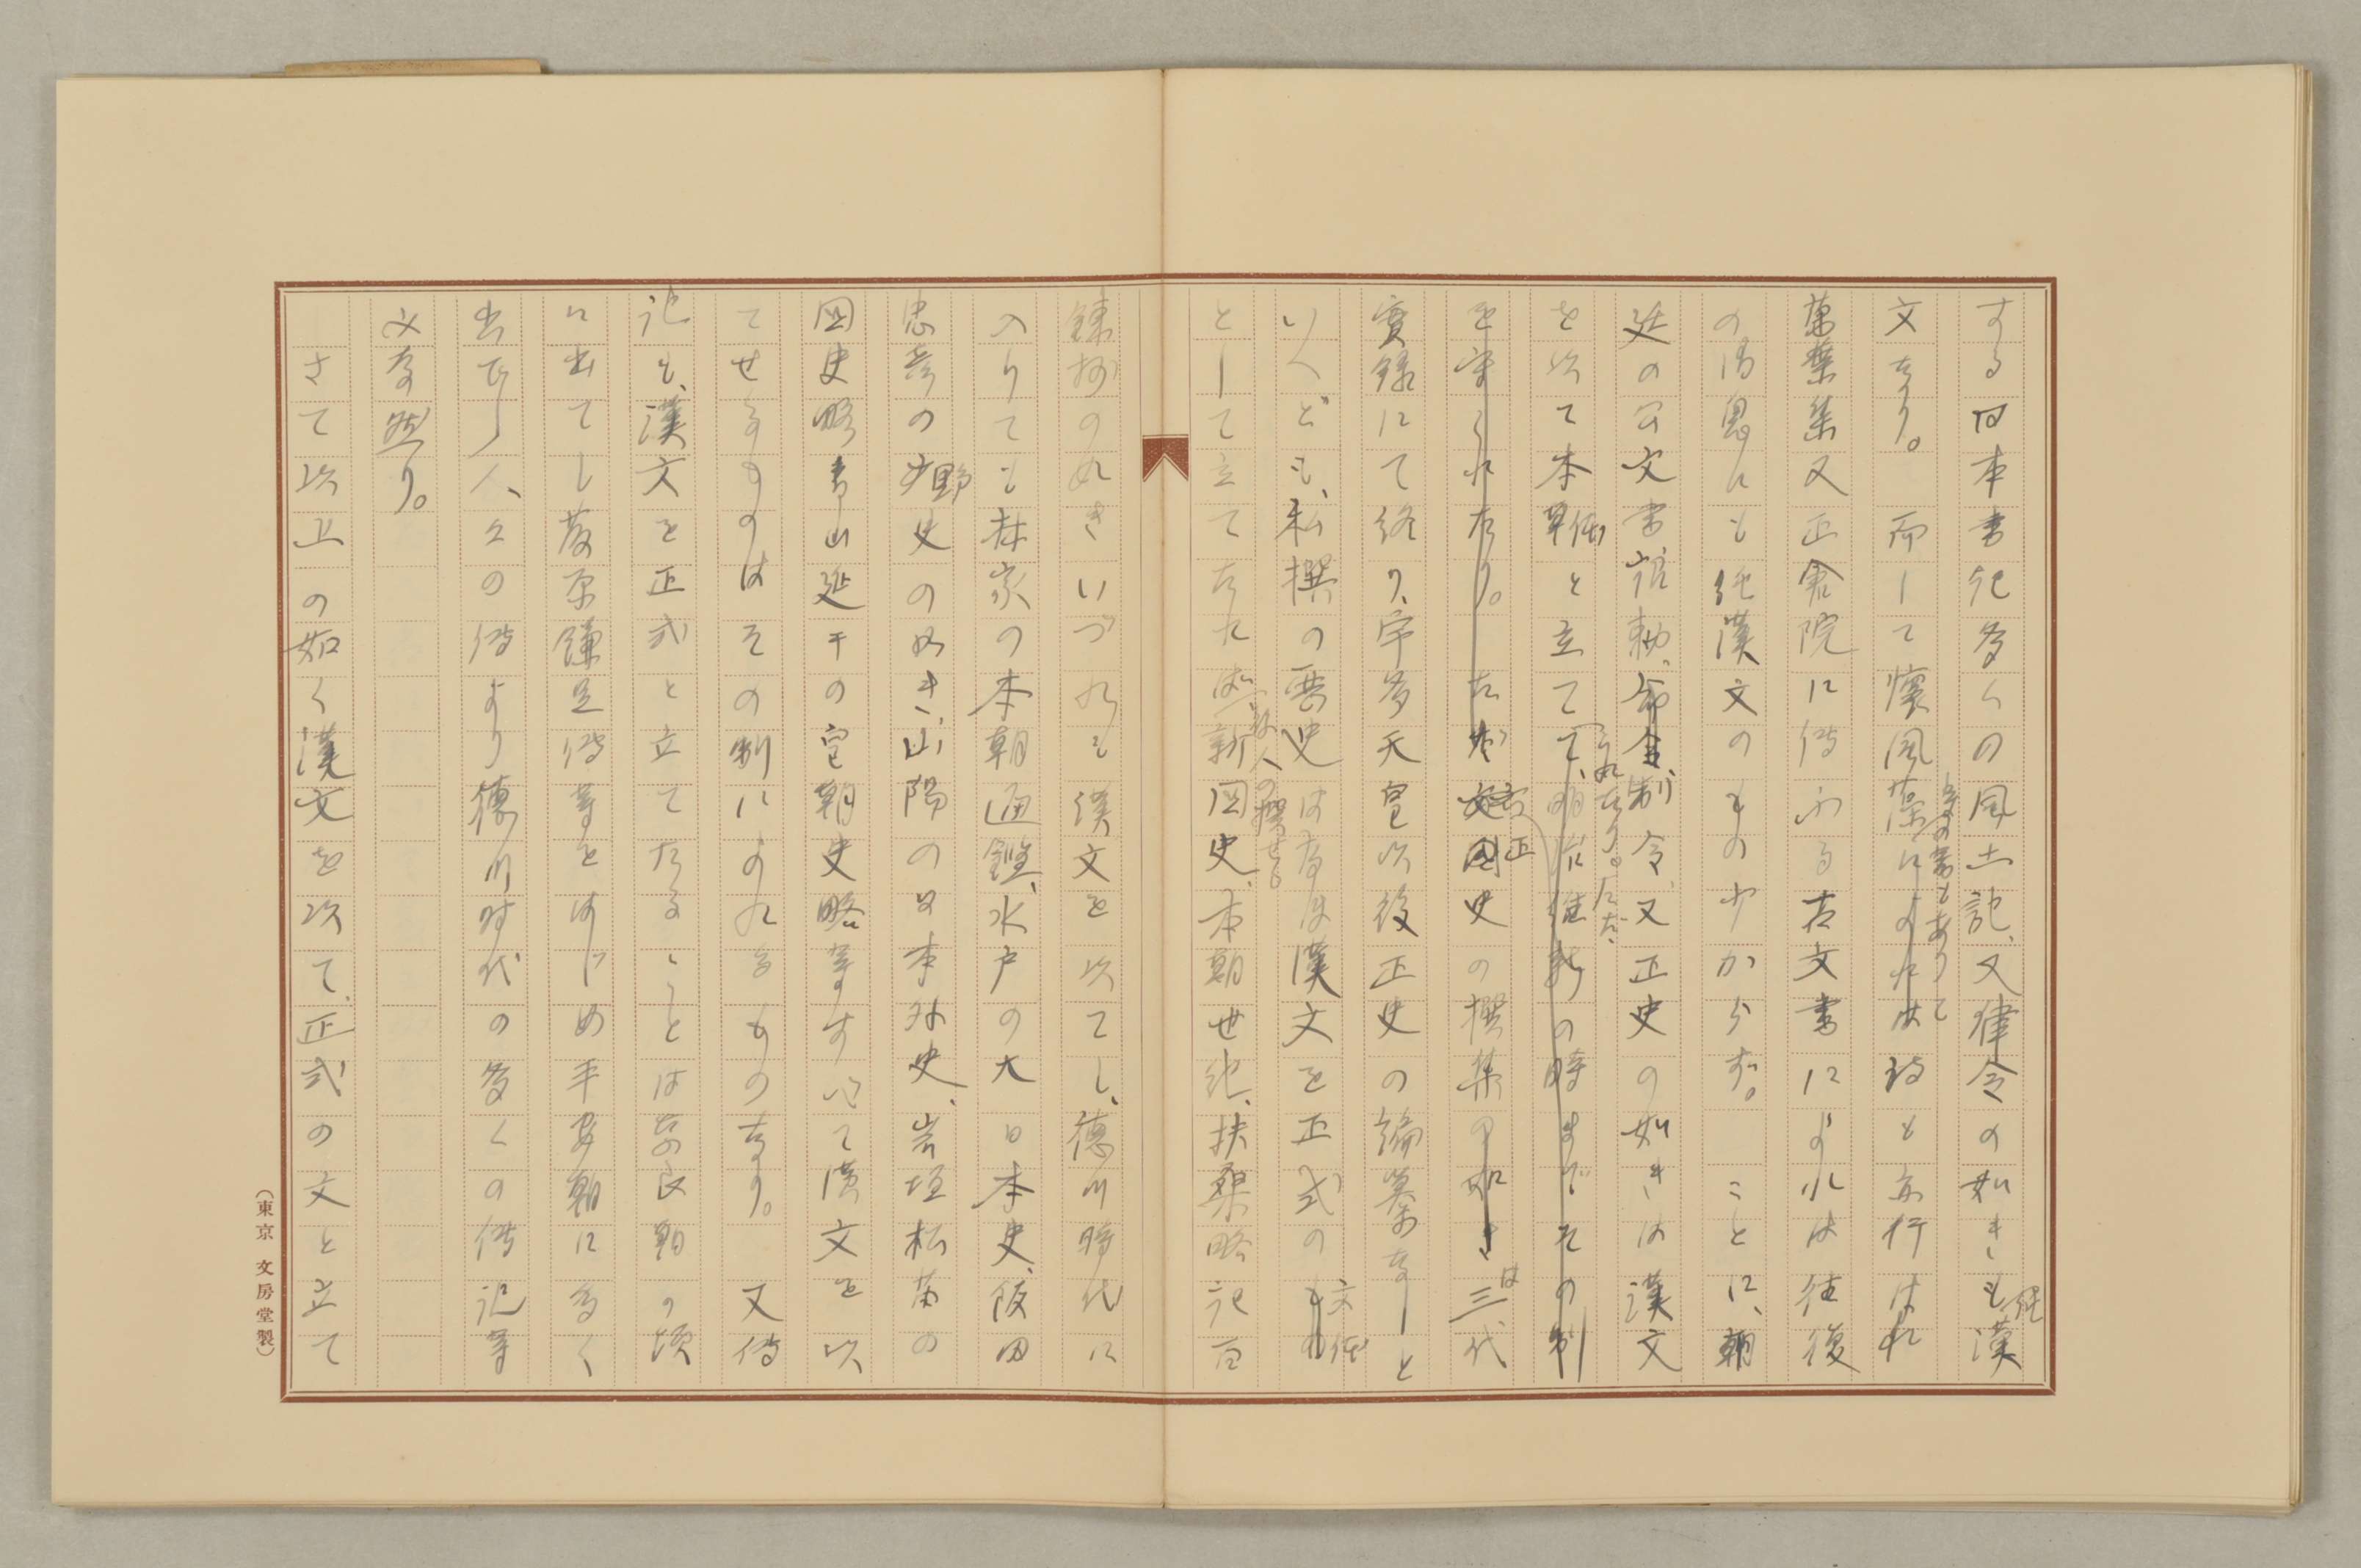 する日本書紀多くの風土記、又律令の如きも純漢
文なり。而して懐風藻によれは詩も亦行はれ
等の書もありて
萬葉集又正倉院に傳ふる古文書によれは往復
の消息にも純漢文のもの少からず。ことに、朝
延の公文書詔勅、命令、制令、又正史の如きは漢文
を以て本体と立てて、明治維新の時までその制
られたり。たゞ、
を守られたり。たゞ国史の撰集の如きは三代
正
實録にて終り、宇多天皇以後正史の編纂なしと
いへども、私撰の歴史はなほ漢文を正式のもの
文体
として立てたれば、新国史、本朝世紀、扶桑略記百
私人の撰せる
錬抄の如きいづれも漢文を以てし、徳川時代に
入りても林家の本朝通鑑、水戸の大日本史、飯田
忠彦の野史の如き、山陽の日本外史、岩垣松苗の
国史略青山延于の皇朝史略等すべて漢文を以
てせるものはその制によれるものなり。又傳
記も、漢文を正式と立てたることは奈良朝の頃
に出でし藤原鎌足傳等をはじめ平安朝に多く
出でし人々の傳より徳川時代の多くの傳記等
又な然り。
さて以上の如く漢文を以て、正式の文と立て
（東京 文房堂製）